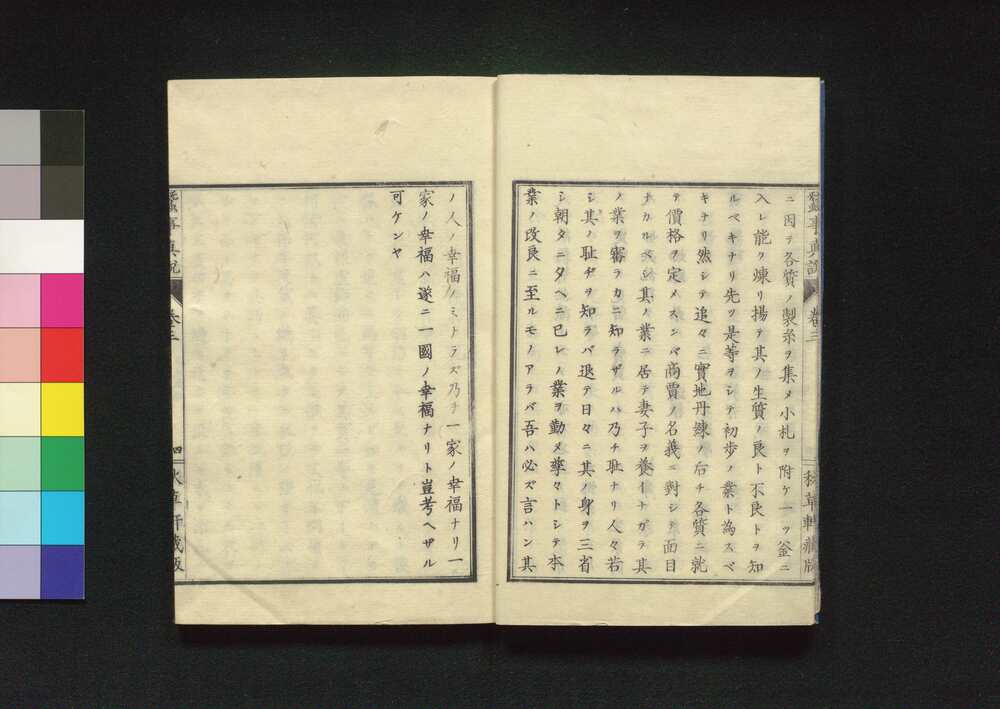 蠶事真説
卷三
秋草軒藏版
ニ因テ各質ノ製糸ヲ集メ小札ヲ附ケ一ツ釜ニ
入レ能ク煉リ揚テ其ノ生質ノ良ト不良トヲ知
ルベキナリ先ツ是等ヲシテ初歩ノ業ト為スベ
キナリ然シテ追々ニ實地丹練ノ后チ各質ニ就
テ價格ヲ定メスンバ商賈ノ名義ニ對シテ面目
ナカルベシ其ノ業ニ居テ妻子ヲ養イナガラ其
ノ業ヲ審ラカニ知ラザルハ乃チ耻ナリ人々若
シ其ノ耻ヂヲ知ラバ退テ日々ニ其ノ身ヲ三省
シ朝タニ夕ベニ已レノ業ヲ勤メ孳々トシテ本
業ノ改良ニ至ルモノアラバ吾ハ必ズ言ハン其
ノ人ノ幸福ノミトラズ乃チ一家ノ幸福ナリ一
家ノ幸福ハ遂ニ一國ノ幸福ナリト豈考ヘザル
可ケンヤ
卷三
四